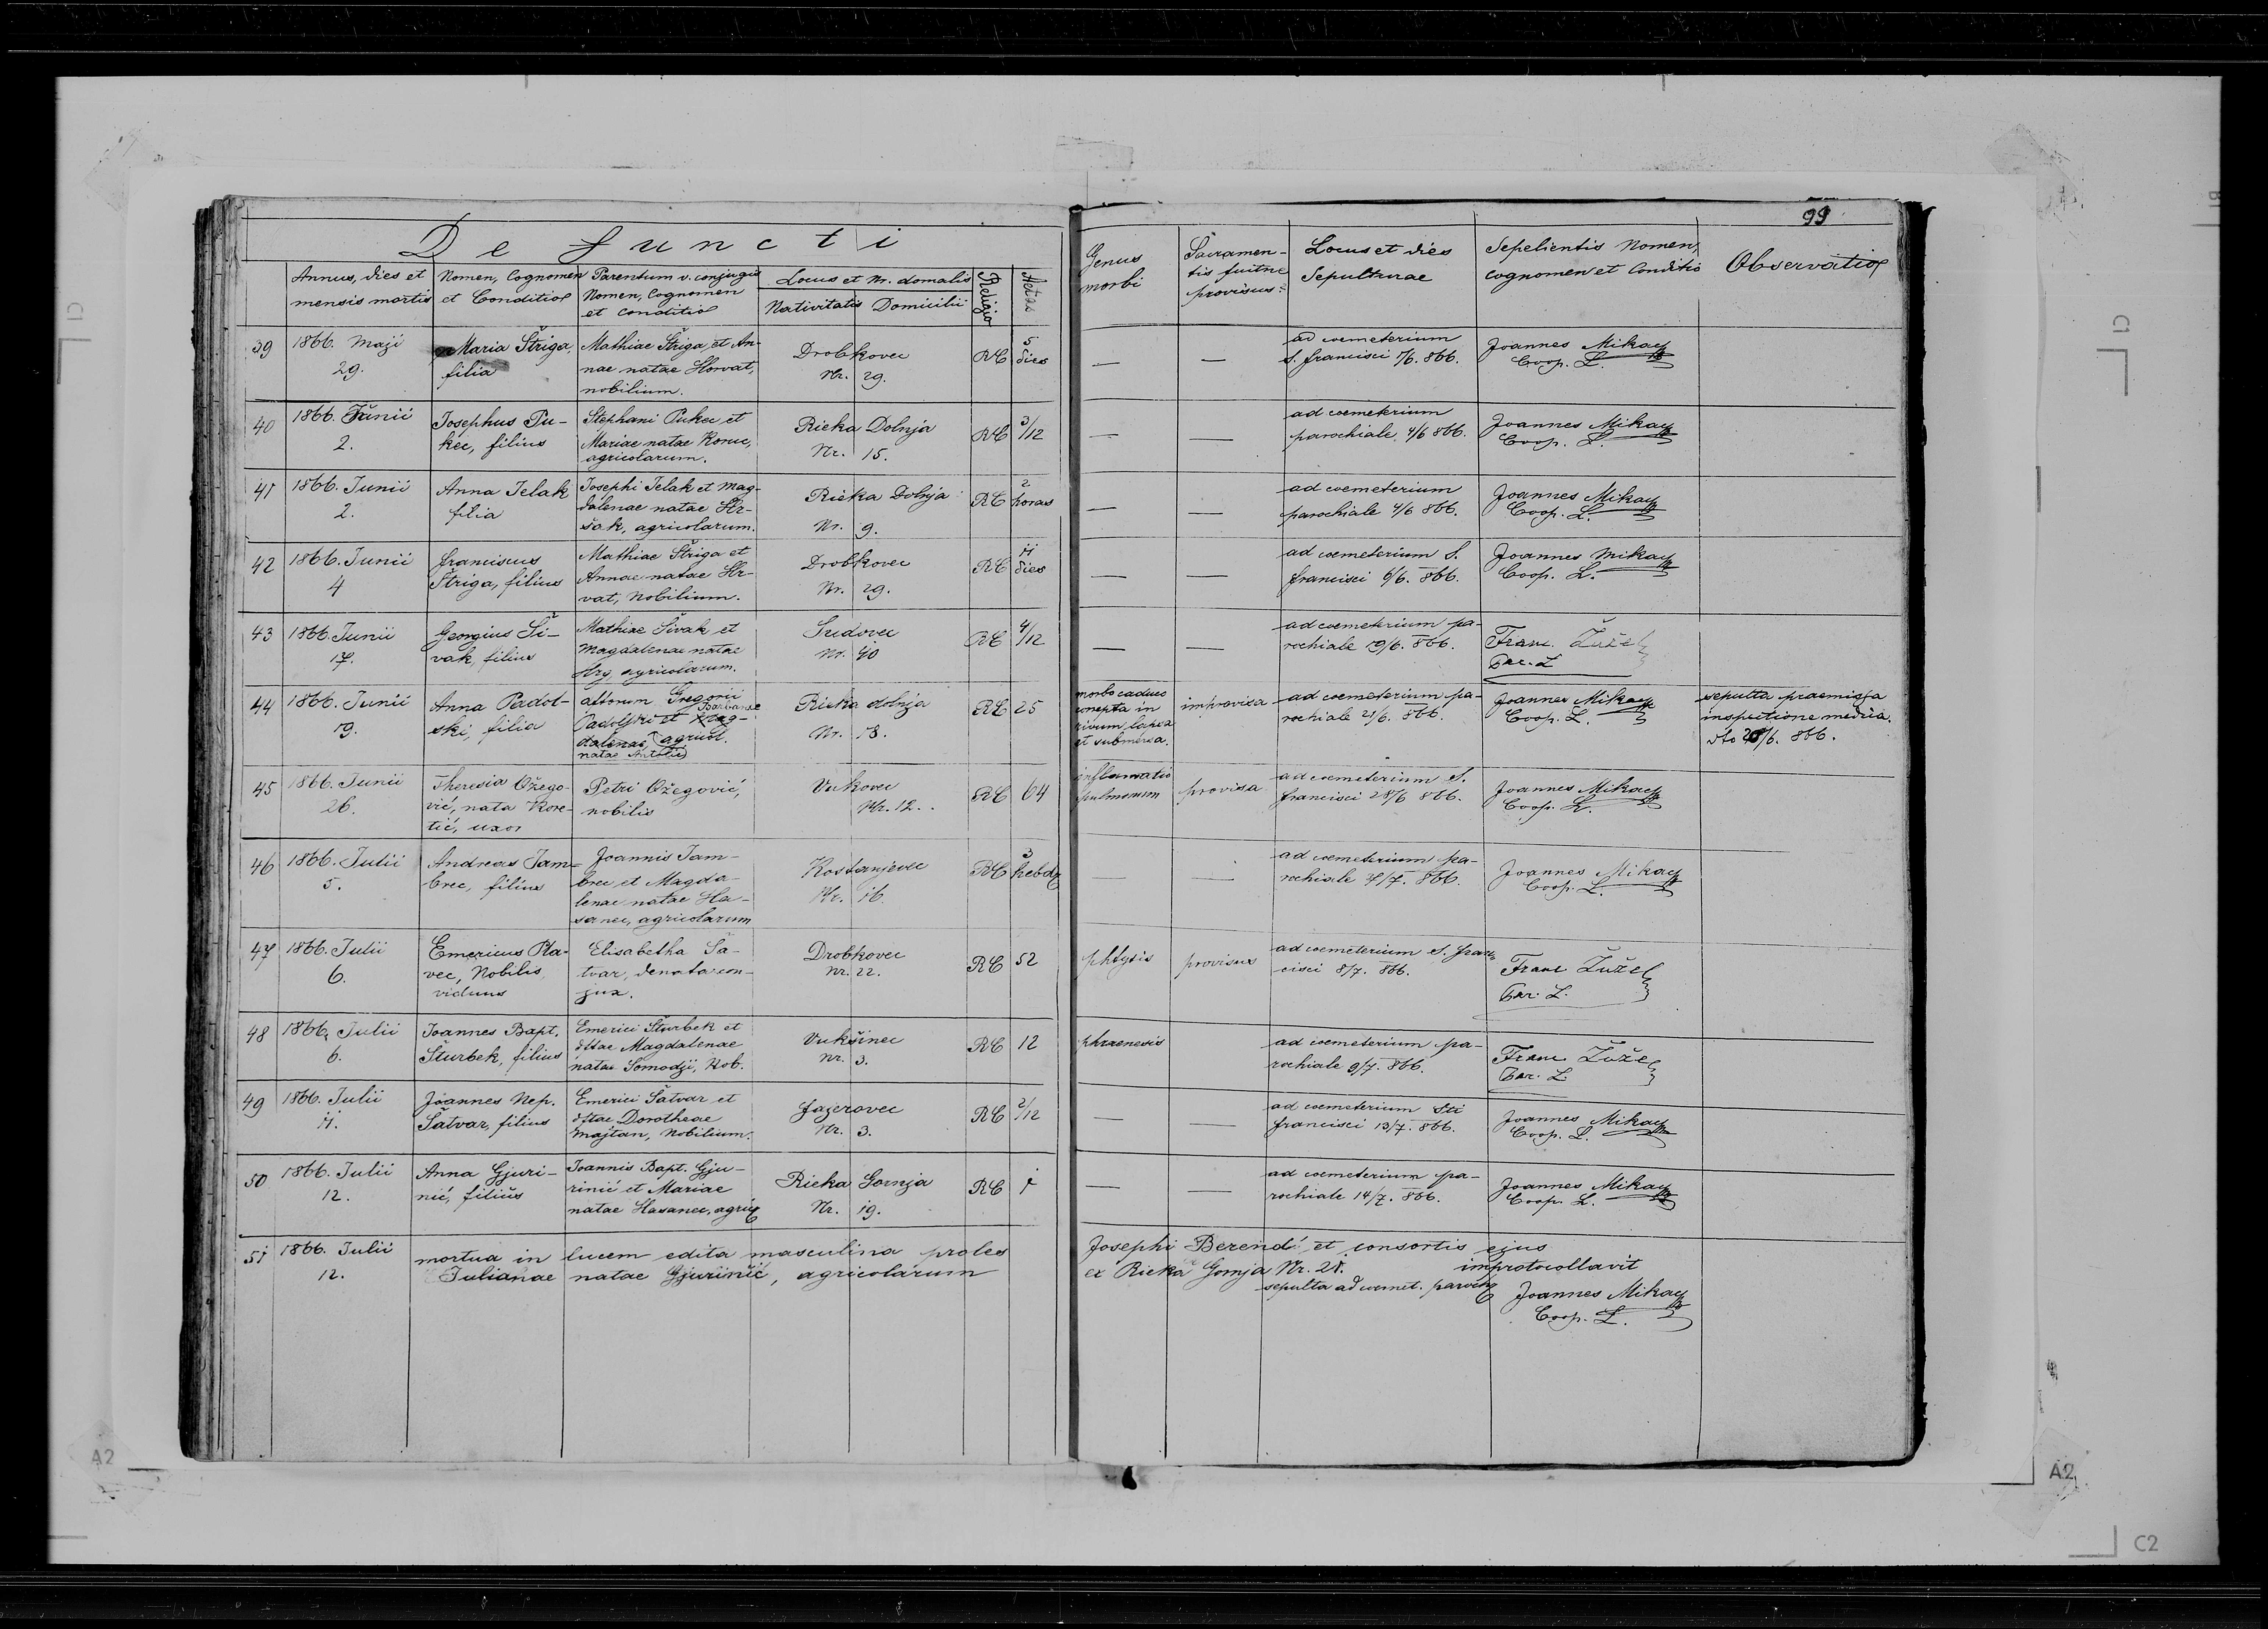 99
Defuncti
Annus, dies et
mensis mortis
Nomen, Cognomen
et Conditio
Parentum v. conjugis
Nomen, Cognomen
et conditio
Locus et Nr. domalis
Nativitatis Domicilii
Religio
Aetas
Genus
morbi
Sacramen-
tis fuitne
provisus?
Locus et dies
Sepulturae
Sepelientis Nomen,
cognomen et Conditio
Observatio
39
1866. Maji
29.
Maria Štriga,
filia
Mathiae Štriga et An-
nae natae Horvat,
nobilium.
Drobkovec
Nr. 29.
RC
5
dies
—
—
ad coemeterium
S. Francisci 1/6. 866.
Joannes Mikac
Coop. L.
40
1866. Junii
2.
Josephus Pu-
kec, filius
Stephani Pukec et
Mariae natae
agricolarum.
Rieka Dolnja
Nr. 15.
RC
3/12
—
—
ad coemeterium
parochiale 4/6 866.
Joannes Mikac
Coop. L.
41
1866. Junii
2.
Anna Jelak
filia
Josephi Jelak et Mag-
dalenae natae Hr-
šak, agricolarum.
Rieka Dolnja
Nr. 9.
RC
2
horas
—
—
ad coemeterium
parochiale 4/6 866.
Joannes Mikac
Coop. L.
42
1866. Junii
4
Franciscus
Štriga, filius
Mathiae Štriga et
Annae natae Hr-
vat, Nobilium.
Drobkovec
Nr. 29.
RC
11
dies
—
—
ad coemeterium S.
Francisci 6/6. 866.
Joannes Mikac
Coop. L.
43
1866. Junii
17.
Georgius Ši-
vak, filius
Mathiae Šivak et
Magdalenae natae
agricolarum.
Sudovec
Nr. 40
RC
4/12
—
—
ad coemeterium pa-
rochiale 19/6. 866.
Franc Žužel
Par. L
44
1866. Junii
19.
Anna Padol-
ski, filia
Gregorii
Padolski et Mag-
Barbarae
dalenae agricol.
natae
Rieka dolnja
Nr. 18.
RC
25
morbo caduco
correpta in
rivum lapsa
et submersa.
improvisa
ad coemeterium pa-
rochiale 21/6. 866.
Joannes Mikac
Coop. L.
sepulta praemissa
inspectione medica.
dto 20/6. 866.
45
1866. Junii
26.
Theresia Ožego-
vić, nata Kore-
tić, uxor
Petri Ožegović,
nobilis
Vukovec
Nr. 12.
RC
64
inflamatio
pulmonum
provisa
ad coemeterium S.
Francisci 28/6 866.
Joannes Mikac
Coop. L.
46
1866. Julii
5.
Andreas Jam-
brec, filius
Joannis Jam-
brec et Magda-
lenae natae Ha-
sanec, agricolarum
Kostanjevec
Nr. 16.
RC
3
hebd.
—
—
ad coemeterium pa-
rochiale 7/7. 866.
Joannes Mikac
Coop. L.
47
1866. Julii
6.
Emericus Pla-
vec, Nobilis,
viduus
Elisabetha Ša-
tvar, denata con-
jux.
Drobkovec
Nr. 22.
RC
52
phtysis
provisus
ad coemeterium S. Fran-
cisci 8/7. 866.
Franc Žužel
Par. L.
48
1866. Julii
6.
Joannes Bapt.
Šturbek, filius
Emerici Šturbek et
dttae Magdalenae
natae Somodji, Nob.
Vukšinec
Nr. 3.
RC
12
phraenesis
ad coemeterium pa-
rochiale 9/7. 866.
Franc Žužel
Par. L
49
1866. Julii
11.
Joannes Nep.
Šatvar, filius
Emerici Šatvar et
dttae Dorotheae
Majtan, Nobilium.
Fazerovec
Nr. 3.
RC
2/12
—
—
ad coemeterium Sti
Francisci 13/7. 866.
Joannes Mikac
Coop. L.
50
1866. Julii
12.
Anna Gjuri-
nić, filius
Joannis Bapt. Gju-
rinić et Mariae
natae Hasanec, agric.
Rieka Gornja
Nr. 19.
RC
1
—
—
ad coemeterium pa-
rochiale 14/7. 866.
Joannes Mikac
Coop. L.
51
1866. Julii
12.
mortua in lucem edita masculina proles Josephi Berend et consortis ejus
Julianae natae Gjurinić, agricolarum ex Rieka Gornja Nr. 21. improtocollavit
sepulta ad coemet. paroch.
Joannes Mikac
Coop. L.
C1
C1
B1
A2
A2
C2